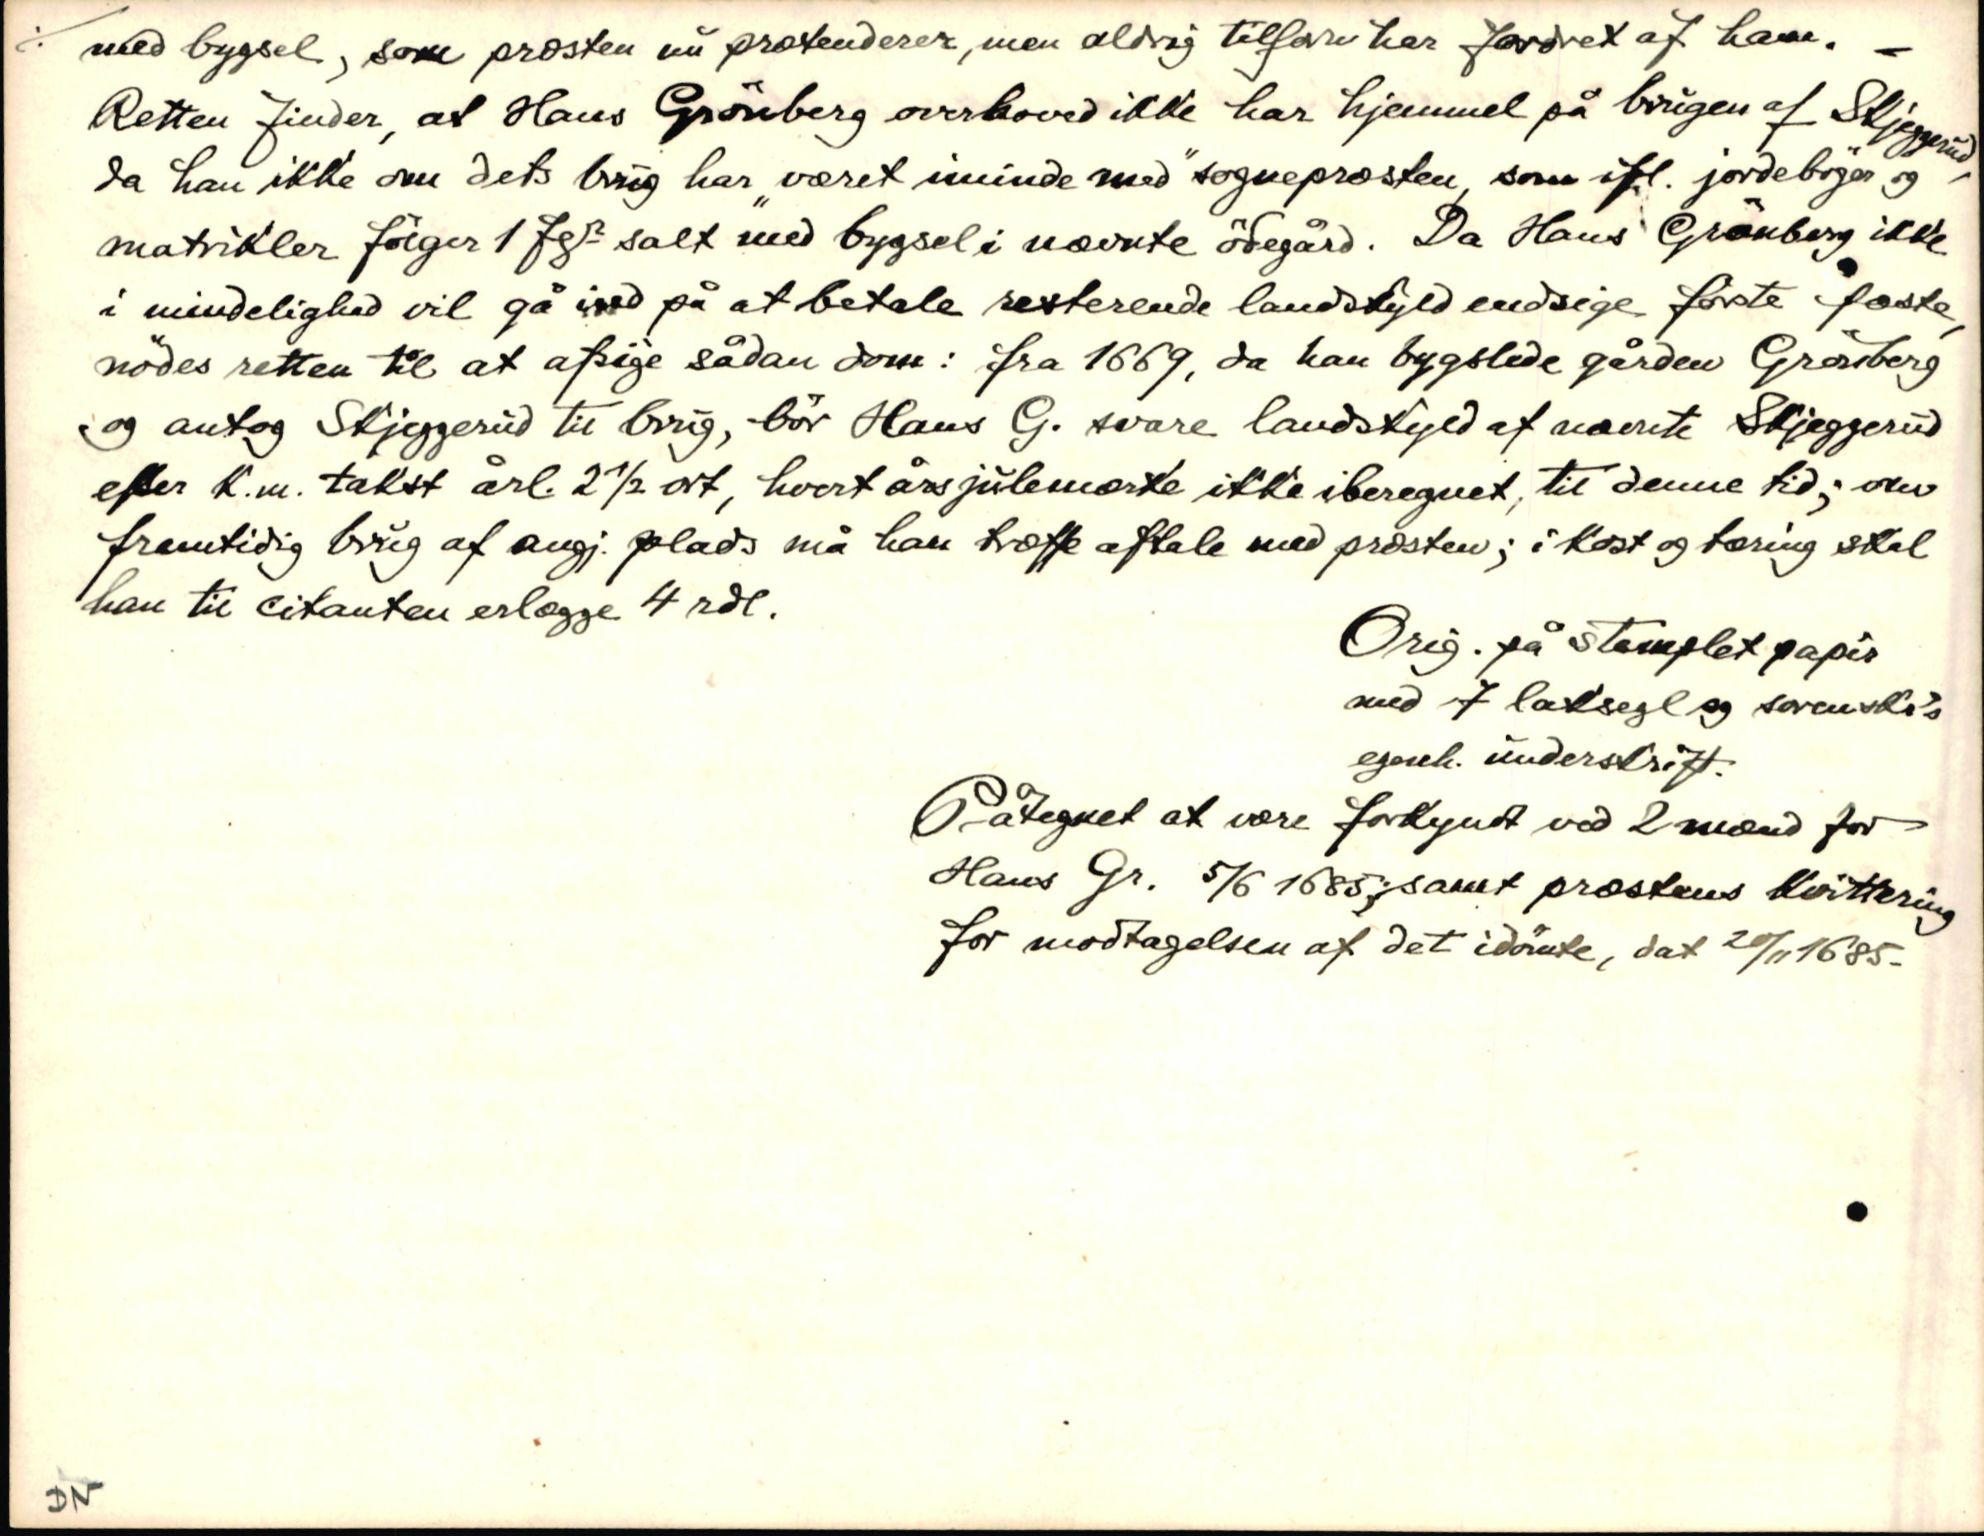 med bygsel, som presten nu prætenderer, men aldrig tilforn har fordret af ham. –
Retten finder, at Hans Grönberg overhoved ikke har hjemmel på brugen af Skjeggerud,
da han ikke om dets brug har "været iminde med" sognepræsten, som ifl. jordebøger og
matrikler følger 1 fgr salt med bygsel i nævnte ödegård. Da Hans Grönberg ikke
i mindelighed vil gå ind på at betale resterende landskyld endsige första fæste,
nödes retten til at afsige sådan dom: fra 1669, da han bygslede gården Grönberg
og antog Skjeggerud til brug, bör Hans G. svare landskyld af nævnte Skjeggerud
efter K.m. takst årl. 2 1/2 ort, hvert års julemærke ikke iberegnet, til denne tid; om
fremtidig brug af angj. plads må han træffe aftale med præsten; i kost og tæring skal
han til citanten erlægge 4 rdl.
Orig. på stemplet papir
med 7 laksegl og sorenskr's
egenh. underskrift.
Påtegnet at være forkyndt ved 2 mænd for
Hans Gr. 5/6 1685; samt præstens kvittering
for modtagelsen af det idömte, dat 20/11 1685.
DN